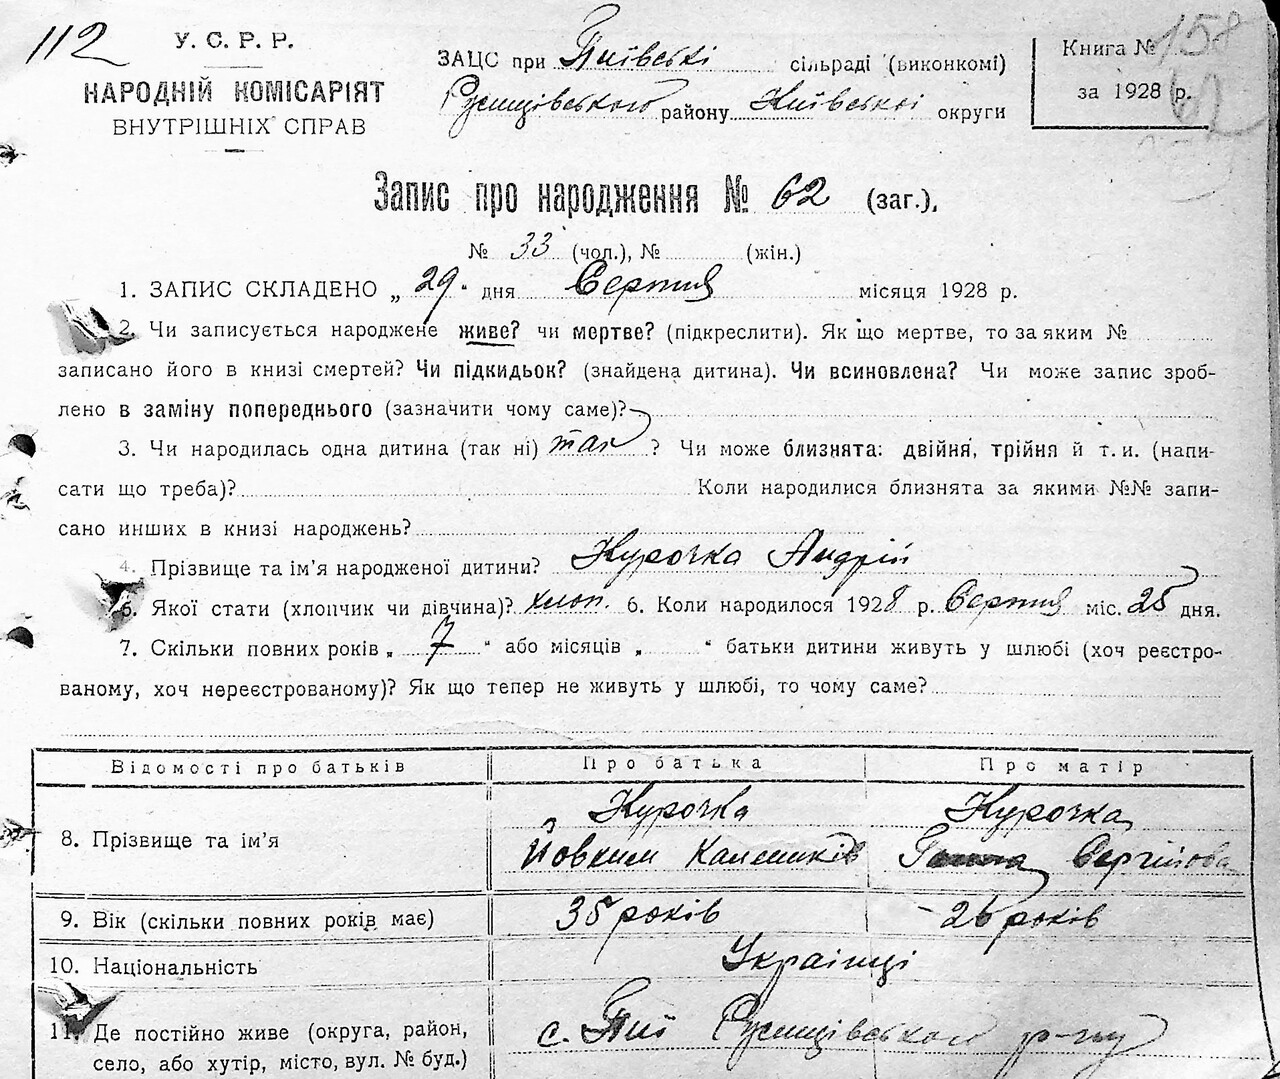 112
У. С. Р. Р.
НАРОДНІЙ КОМІСАРІЯТ
ВНУТРІШНІХ СПРАВ
ЗАЦС при Пиївські сільраді (виконкомі)
району Київської округи
Книга № 158
за 1928 р. 62
Запис про народження № 62 (заг.),
№ 33 (чол.), № (жін.)
1. ЗАПИС СКЛАДЕНО „ 29 " дня Серпня місяця 1928 р.
2. Чи записується народжене живе? чи мертве? (підкреслити). Як що мертве, то за яким №
записано його в книзі смертей? Чи підкидьок? (знайдена дитина). Чи всиновлена? Чи може запис зроб-
лено в заміну попереднього (зазначити чому саме)?
3. Чи народилась одна дитина (так ні) так ? Чи може близнята: двійня, трійня й т. и. (напи-
сати що треба)? Коли народилися близнята за якими №№ запи-
сано инших в книзі народжень?
4. Прізвище та ім'я народженої дитини? Курочка Андрій
5. Якої стати (хлопчик чи дівчина)? хлоп. 6. Коли народилося 1928 р. Серпня міс. 25 дня.
7. Скільки повних років „ 7 " або місяців „ " батьки дитини живуть у шлюбі (хоч реєстро-
ваному, хоч нереєстрованому)? Як що тепер не живуть у шлюбі, то чому саме?
Відомості про батьків Про батька Про матір
8. Прізвище та ім'я Курочка Йовким Калеников Курочка Ганна Сергійова
9. Вік (скільки повних років має) 35 років 26 років
10. Національність Українці
11. Де постійно живе (округа, район, с. Пиї р-ну
село, або хутір, місто, вул. № буд.)